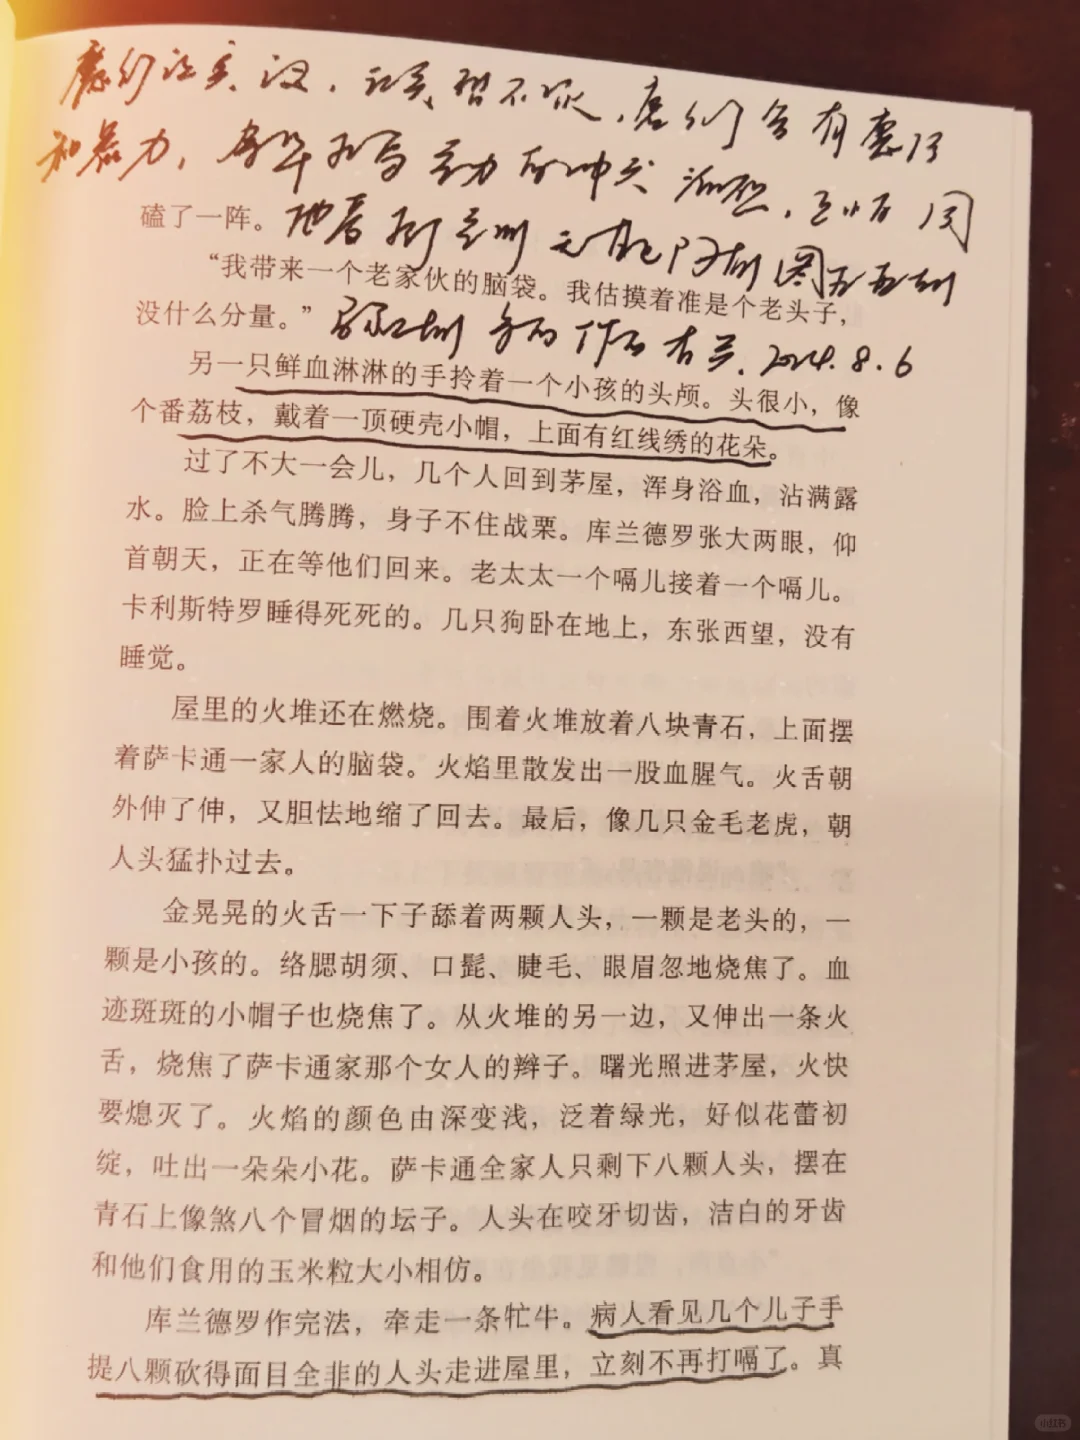 和暴力，
磕了一阵。
“我带来一个老家伙的脑袋。我估摸着准是个老头子，
没什么分量。”
2024.8.6
另一只鲜血淋淋的手拎着一个小孩的头颅。头很小，像
个番荔枝，戴着一顶硬壳小帽，上面有红线绣的花朵。
过了不大一会儿，几个人回到茅屋，浑身浴血，沾满露
水。脸上杀气腾腾，身子不住战栗。库兰德罗张大两眼，仰
首朝天，正在等他们回来。老太太一个嗝儿接着一个嗝儿。
卡利斯特罗睡得死死的。几只狗卧在地上，东张西望，没有
睡觉。
屋里的火堆还在燃烧。围着火堆放着八块青石，上面摆
着萨卡通一家人的脑袋。火焰里散发出一股血腥气。火舌朝
外伸了伸，又胆怯地缩了回去。最后，像几只金毛老虎，朝
人头猛扑过去。
金晃晃的火舌一下子舔着两颗人头，一颗是老头的，一
颗是小孩的。络腮胡须、口髭、睫毛、眼眉忽地烧焦了。血
迹斑斑的小帽子也烧焦了。从火堆的另一边，又伸出一条火
舌，烧焦了萨卡通家那个女人的辫子。曙光照进茅屋，火快
要熄灭了。火焰的颜色由深变浅，泛着绿光，好似花蕾初
绽，吐出一朵朵小花。萨卡通全家人只剩下八颗人头，摆在
青石上像煞八个冒烟的坛子。人头在咬牙切齿，洁白的牙齿
和他们食用的玉米粒大小相仿。
库兰德罗作完法，牵走一条牤牛。病人看见几个儿子手
提八颗砍得面目全非的人头走进屋里，立刻不再打嗝了。真
小红书